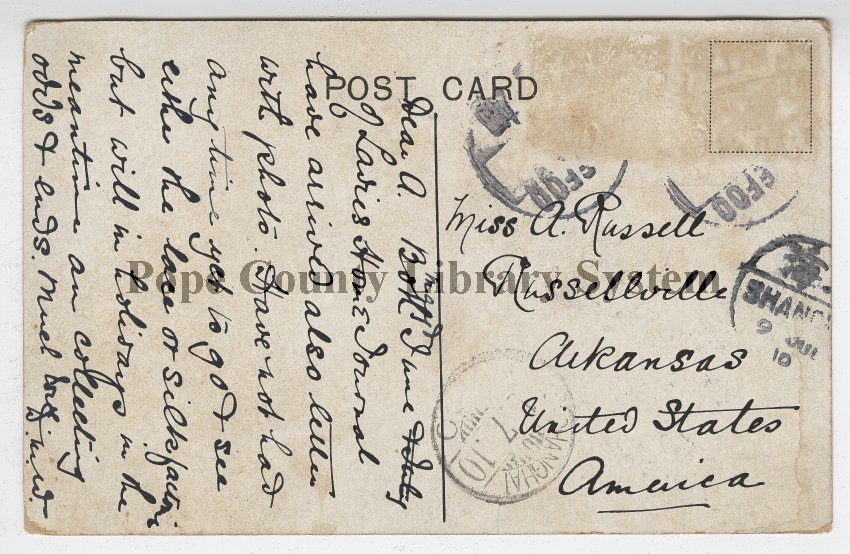 POST CARD
Dear A. Both mags June & July
of Ladies Home Journal
have arrived also letter
with photo. Have not had
any time yet to go & see
either the lace or silk factories
but will in holidays in the
meantime am collecting
odds & ends. Much love
Miss A. Russell
Russellville
Arkansas
United States
America
Pope County Library System
EFOO
EFOO
SHANG
9 JUL
10
SHANGHAI
7
10